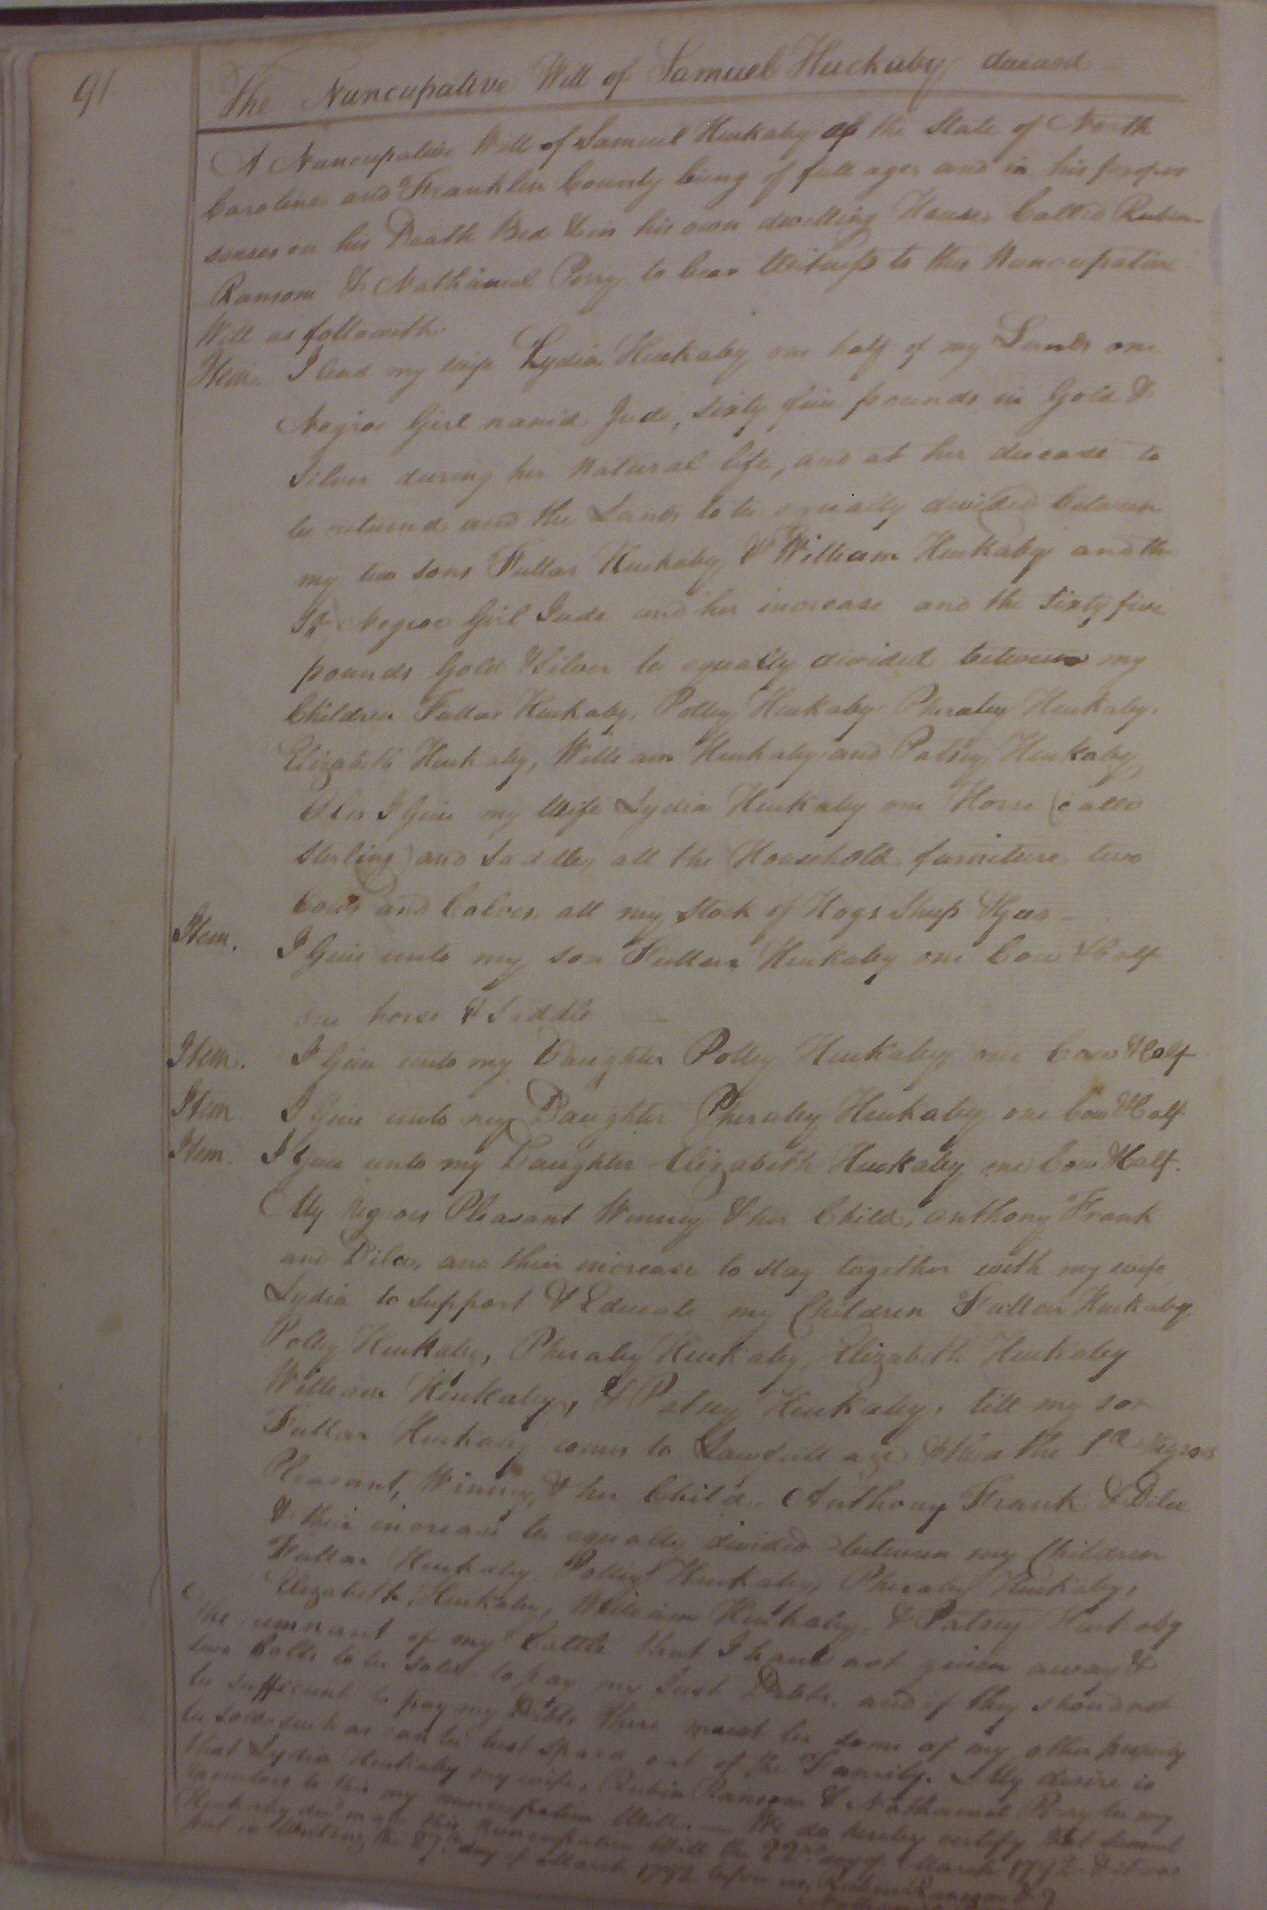 91
The Nuncupative Will of Samuel Huckaby deceasd
A Nuncupative Will of Samuel Huckaby of the State of North
Carolina and Franklin County being of full age, and in his proper
senses on his Death Bed & in his own dwelling House, Called Rubin
Ransom & Nathaniel Perry to bear Witness to this Nuncupative
Will as followeth.
Item. I lend my wife Lydia Huckaby one half of my Lands one
Negroe Girl namd Jude, Sixty five pounds in Gold &
Silver during her natural life, and at her decease to
be returnd and the Lands to be equally divided between
my two sons Fullar Huckaby & William Huckaby and the
Sd Negroe Girl Jude and her increase and the Sixty five
pounds Gold & Silver be equally divided between my
Children Fullar Huckaby, Polley Huckaby Pheraby Huckaby,
Elizabeth Huckaby, William Huckaby and Patsey Huckaby
Also I Give my Wife Lydia Huckaby one Horse (calld
Sterling) and Saddle, all the Household furniture two
Cows and Calves, all my Stock of Hogs Sheep &
Item. I Give unto my son Fullar Huckaby one Cow & Calf
one horse & Saddle
Item. I Give unto my Daughter Polley Huckaby one Cow & Calf
Item I Give unto my Daughter Pheraby Huckaby one Cow & Calf
Item. I Give unto my Daughter Elizabeth Huckaby one Cow & Calf.
My Negroes Pleasant Winney & her Child, Anthony Frank
and Dilce, and their increase to stay together with my wife
Lydia to Support & Educate my Children Fullar Huckaby
Polley Huckaby, Pheraby Huckaby, Elizabeth Huckaby
William Huckaby, & Patsey Huckaby, till my son
Fullar Huckaby comes to Lawfull age & then the Sd Negroes
Pleasant, Winney, & her Child, Anthony Frank & Dilce
& their increase be equally divided between my Children
Fullar Huckaby Polley Huckaby, Pheraby Huckaby,
Elizabeth Huckaby, William Huckaby, & Patsey Huckaby
The remnant of my Cattle that I have not given away &
two Colts to be Sold to pay my Just Debts. and if they should not
be sufficient to pay my Debts there must be some of my other property
be sold such as can be best spard out of the Family. My desire is
that Lydia Huckaby my wife, Rubin Ransom & Nathaniel Perry be my
Executors to this my nuncupative Will. — We do hereby certify that Samuel
Huckaby decd made this Nuncupative Will the 22nd day of March 1792 & it was
put in Writing the 27th day of March 1792 before us, Rubin Ransom